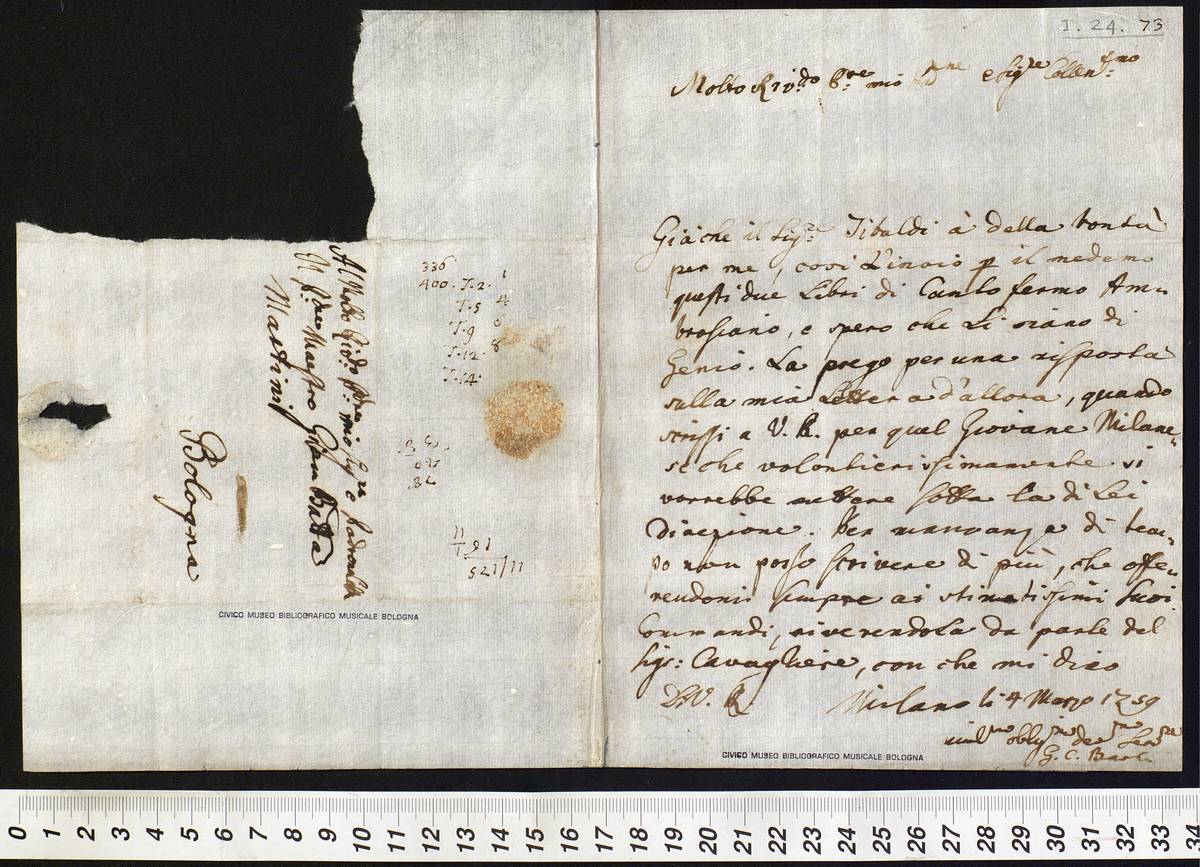 I. 24. 73
Molto Rev:do P:re mio P:rone e Sig:re Collen:mo
Già che il Sig:r Tibaldi à della bontà
per me, così L'invio p il medemo
questi due Libri di Canto fermo Am=
brosiano, e spero che Li siano di
Genio. La prego per una risposta
sulla mia Lettera d'allora, quando
scrissi a V. R. per quel Giovane Milane=
se che volontierissimamente si
vorrebbe mettere sotto la di Lei
Direzione. Per mancanza di tem=
po non posso scrivere di più, che offe=
rendomi sempre ai stimatissimi suoi
Commandi, riverendola da parte del
Sig:r Cavagliere, con che mi dico
D. V. R.
Milano li 4 Marzo 1759
umil:mo obblig:mo de:mo Ser:re
G. C. Bach
CIVICO MUSEO BIBLIOGRAFICO MUSICALE BOLOGNA
Al Molto Rev:do P:re mio Sig:re e Padrone
Il P:dre Maestro Giam Batta
Martini
Bologna
336
400. T. 2. 1
T. 5 4
T. 9 6
T. 12. 8
T. 14.
91
521/11
CIVICO MUSEO BIBLIOGRAFICO MUSICALE BOLOGNA
0 1 2 3 4 5 6 7 8 9 10 11 12 13 14 15 16 17 18 19 20 21 22 23 24 25 26 27 28 29 30 31 32 33 34